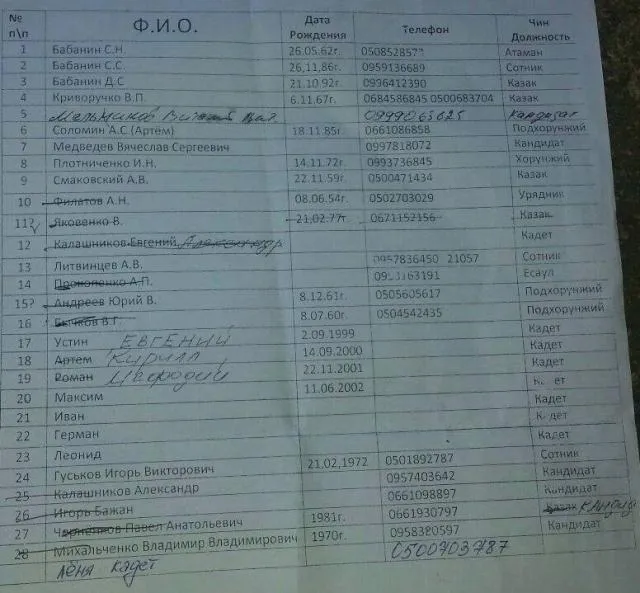 № п\п Ф.И.О. Дата Рождения Телефон Чин Должность
1 Бабанин С.Н. 26.05.62г. 0508528577 Атаман
2 Бабанин С.С. 26,11,86г. 0959136689 Сотник
3 Бабанин Д.С 21.10.92г. 0996412390 Казак
4 Криворучко В.П. 6.11.67г. 0684586845 0500683704 Казак
5 Мельников Кандидат
6 Соломин А.С (Артём) 18.11.85г. 0661086858 Подхорунжий
7 Медведев Вячеслав Сергеевич 0997818072 Кандидат
8 Плотниченко И.Н. 14.11.72г. 0993736845 Хорунжий
9 Смаковский А.В. 22.11.59г. 0500471434 Казак
10 Филатов А.Н. 08.06.54г. 0502703029 Урядник
11? Яковенко В. 21,02.77г. 0671152156 Казак
12 Калашников Евгений Александр Кадет
13 Литвинцев А.В. 0957836450 21057 Сотник
14 Прокопенко А.П. Есаул
15? Андреев Юрий В. 8.12.61г. 0505605617 Подхорунжий
16 Бычков В.Г. 8.07.60г. 0504542435 Подхорунжий
17 Устин ЕВГЕНИЙ 2.09.1999 Кадет
18 Артем Кирилл 14.09.2000 Кадет
19 Роман Мефодий 22.11.2001 Кадет
20 Максим 11.06.2002 Кадет
21 Иван Кадет
22 Герман Кадет
23 Леонид 21,02,1972 0501892787 Сотник
24 Гуськов Игорь Викторович 0957403642 Кандидат
25 Калашников Александр 0661098897 Кандидат
26 Игорь Бажан 0661930797 Казак
27 Черненков Павел Анатольевич 1981г. 0958380597 Кандидат
28 Михальченко Владимир Владимирович 1970г. 0500703787
Лёня кадет